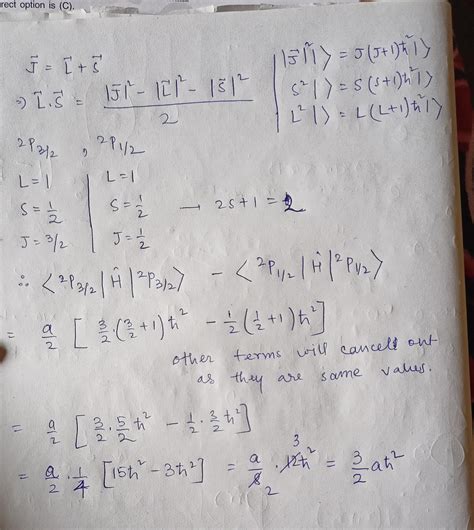 rect option is (C).
J⃗ = L⃗ + S⃗
⇒ L⃗.S⃗ = (|J⃗|² − |L⃗|² − |S⃗|²) / 2
|J⃗|²|⟩ = J(J+1)ħ²|⟩
S²|⟩ = S(S+1)ħ²|⟩
L²|⟩ = L(L+1)ħ²|⟩
²P₃/₂ , ²P₁/₂
L=1 | L=1
S=1/2 | S=1/2 → 2S+1 = 2
J=3/2 | J=1/2
∴ ⟨²P₃/₂|Ĥ|²P₃/₂⟩ − ⟨²P₁/₂|Ĥ|²P₁/₂⟩
= a/2 [ 3/2·(3/2+1)ħ² − 1/2(1/2+1)ħ² ]
other terms will cancel out
as they are same values.
= a/2 [ 3/2·5/2ħ² − 1/2·3/2ħ² ]
= a/2 · 1/4 [15ħ² − 3ħ²] = a/8 2 · 12 3 ħ² = 3/2 aħ²